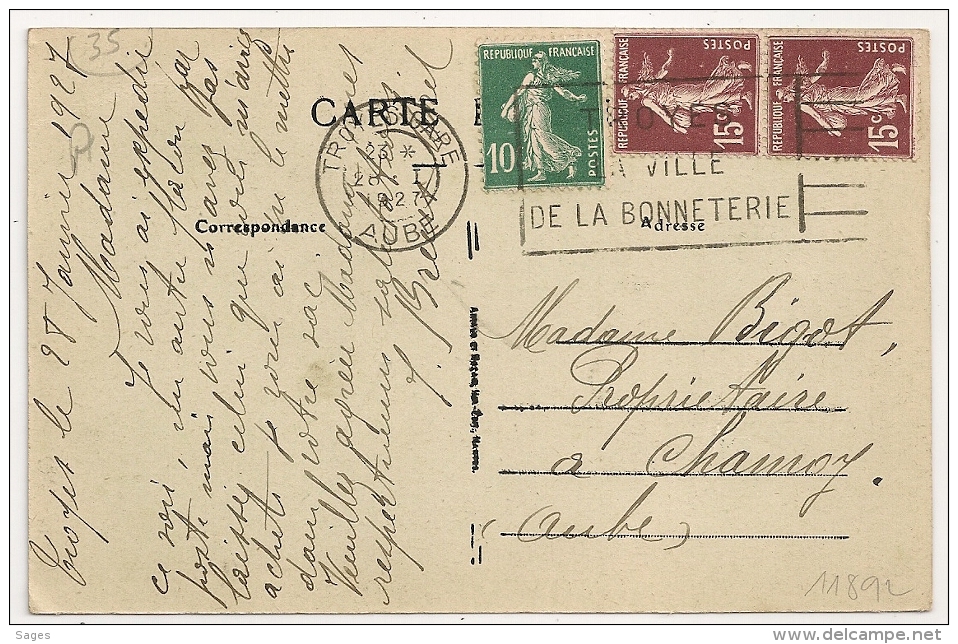 35
CARTE
TROYES GARE
23 *
28 - I
1927
AUBE
REPUBLIQUE FRANÇAISE
10
POSTES
REPUBLIQUE FRANÇAISE
POSTES
15c
REPUBLIQUE FRANÇAISE
POSTES
15c
TROYES
LA VILLE
DE LA BONNETERIE
Correspondance
Adresse
Troyes le 28 Janvier 1927
Madame
Je vous ai expédié
ce soir un carton par
poste mais vous n'avez pas
laissé celui que vous m'aviez
acheté
dans votre sac
Veuillez agréer Madame mes
respectueuses salutations
Madame Bigot,
Propriétaire
à Chamoy
(Aube)
11892
Sages
http://www.delcampe.net